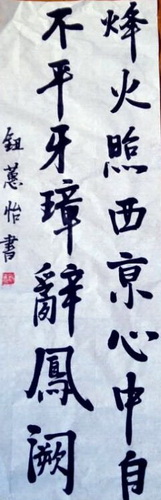 烽火照西京心中自
不平牙璋辭鳳闕
鈕蕙怡書